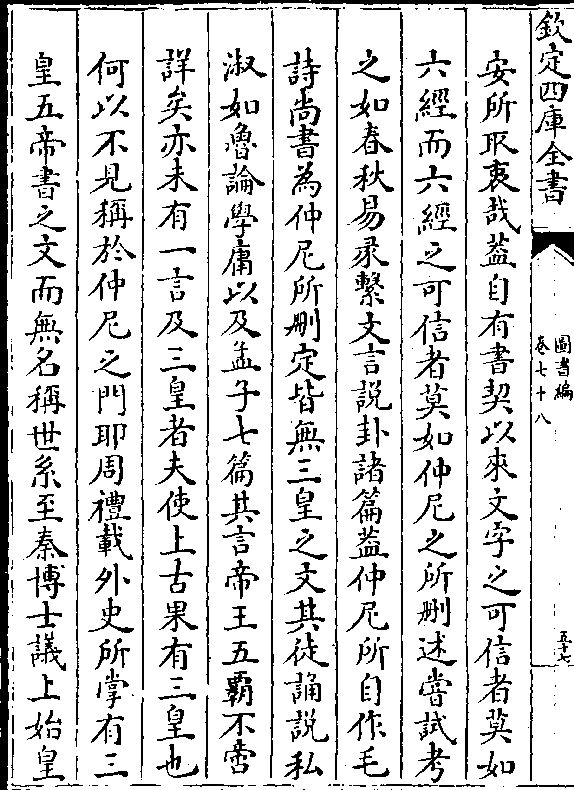 欽定四庫全書
圖書編
卷七十八
五十七
安所取衷哉葢自有書契以來文字之可信者莫如
六經而六經之可信者莫如仲尼之所刪述嘗試考
之如春秋易彖繫文言說卦諸篇葢仲尼所自作毛
詩尚書為仲尼所刪定皆無三皇之文其徒誦說私
淑如魯論學庸以及孟子七篇其言帝王五霸不啻
詳矣亦未有一言及三皇者夫使上古果有三皇也
何以不見稱於仲尼之門耶周禮載外史所掌有三
皇五帝書之文而無名稱世系至秦博士議上始皇